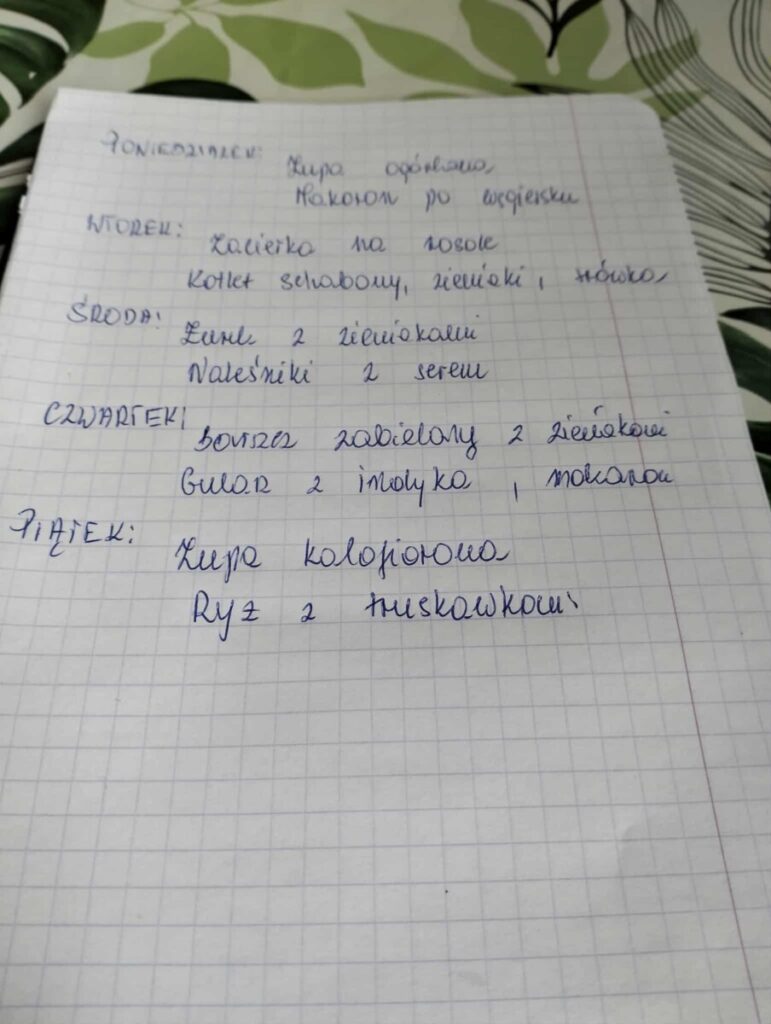 PONIEDZIAŁEK:
Zupa ogórkowa,
Makaron po węgiersku
WTOREK:
Zacierka na rosole
Kotlet schabowy, ziemiaki,
ŚRODA:
Żurek z ziemiakami
Naleśniki z serem
CZWARTEK:
Barszcz zabielany z ziemiakami
Gulasz z indyka, makaron
PIĄTEK:
Zupa kalafiorowa
Ryż z truskawkami